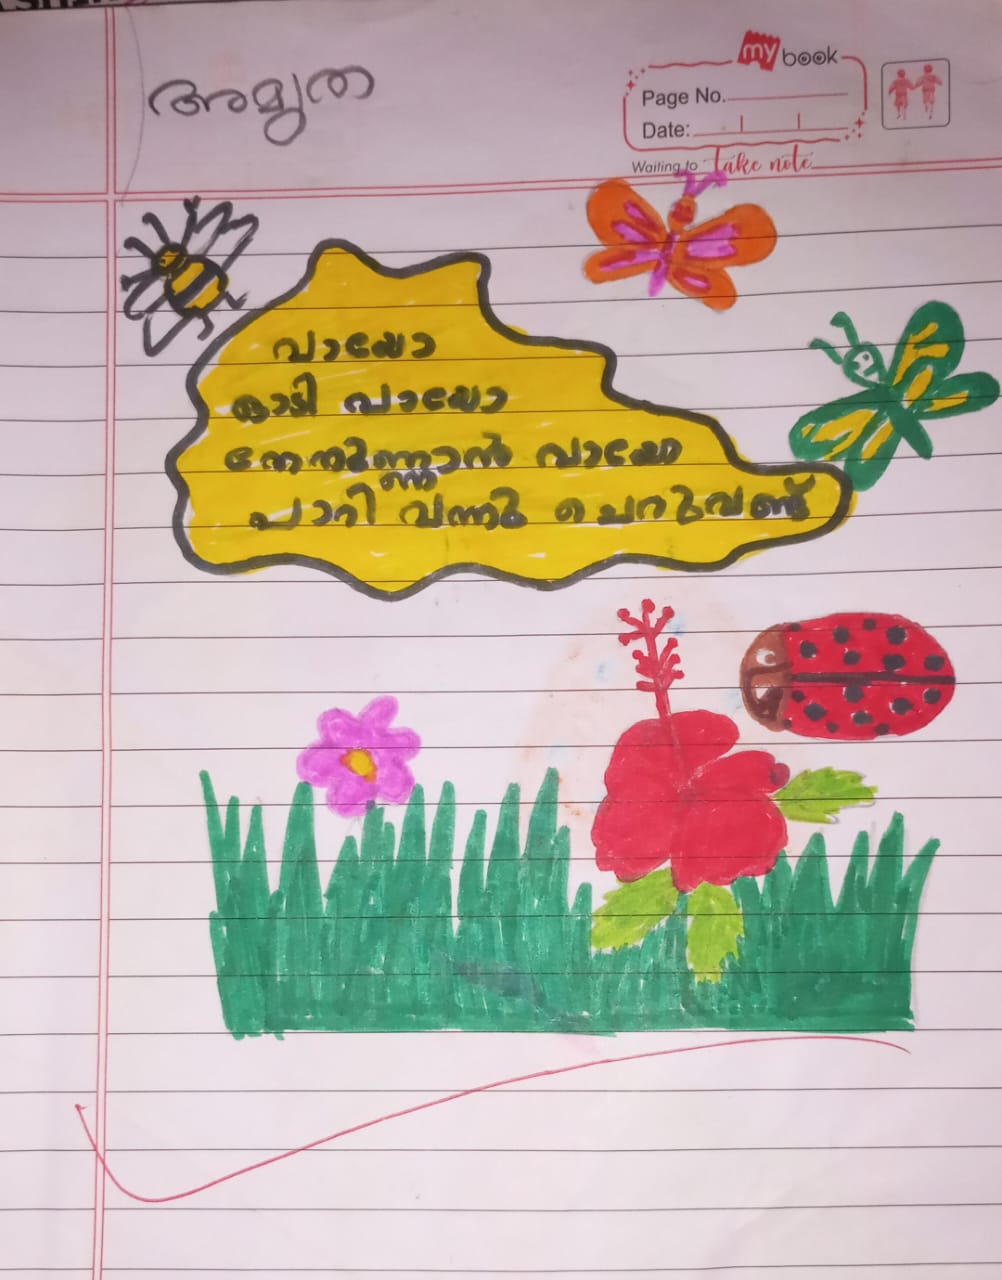 അമൃത
my book
Page No.
Date:
Waiting to take note
വായോ
കാടി വായോ
തേനുണ്ണാൻ വായോ
ണ്ണ
പാറി വന്നു ചെറുവണ്ട്